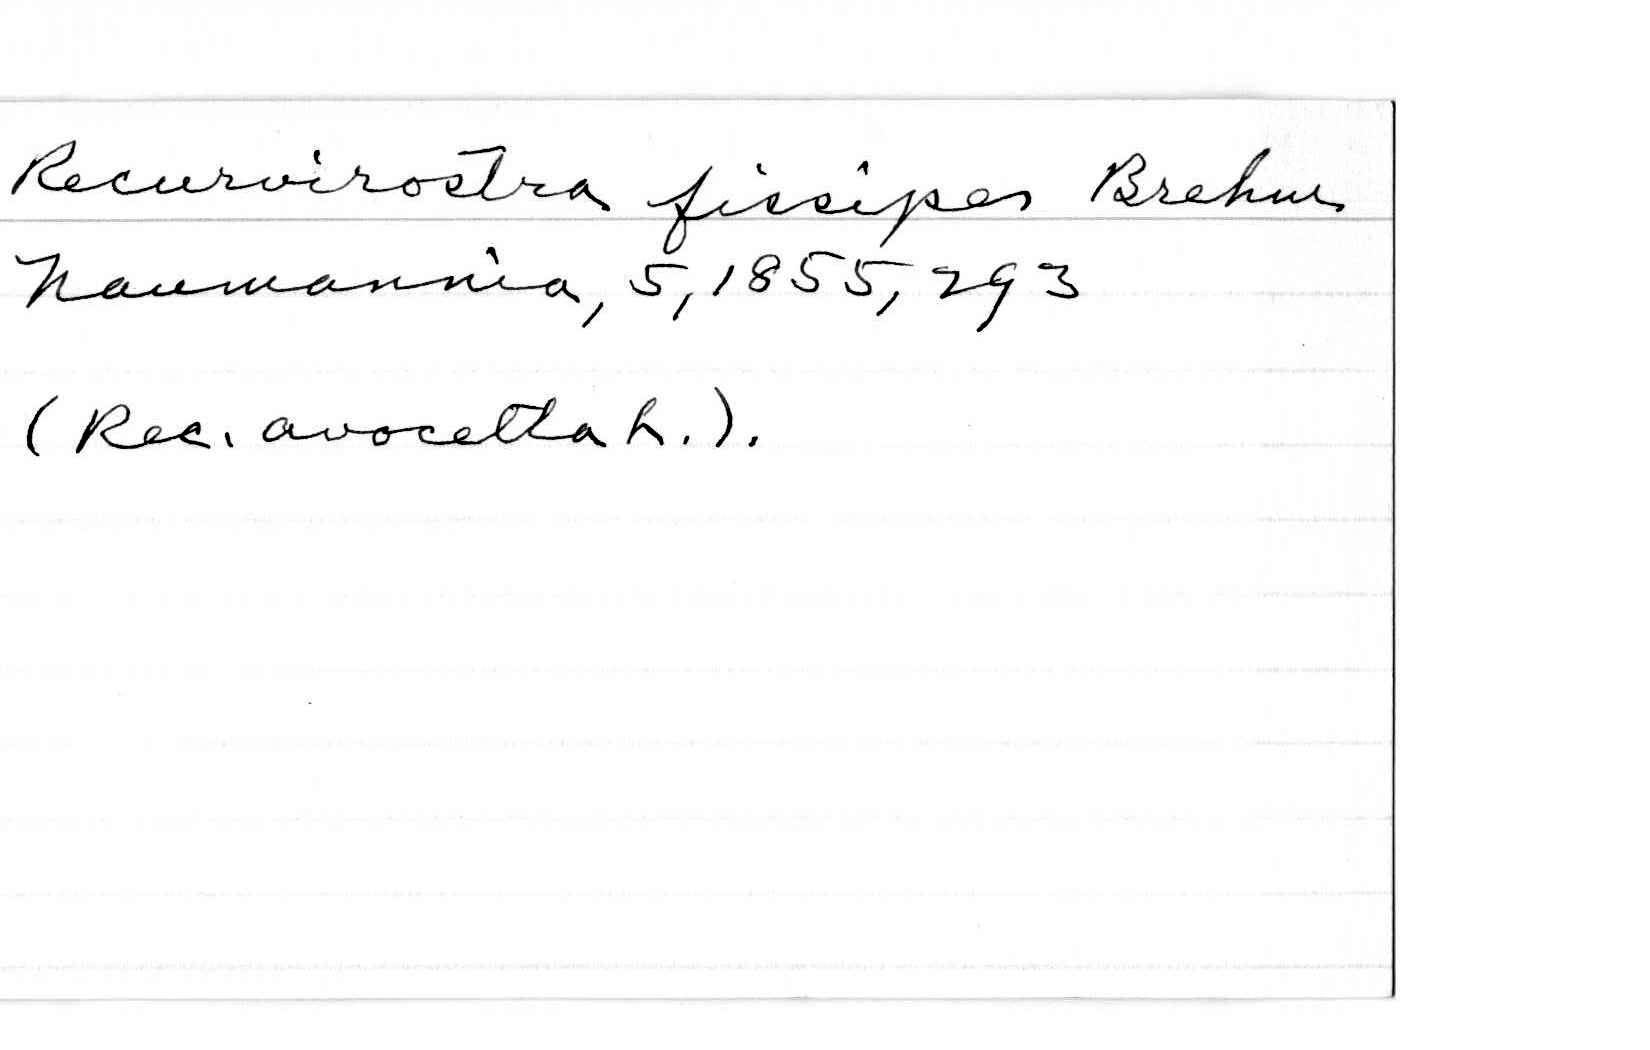 Recurvirostra fissipes Brehm
Naumannia, 5, 1855, 293
(Rec. avocetta L.).